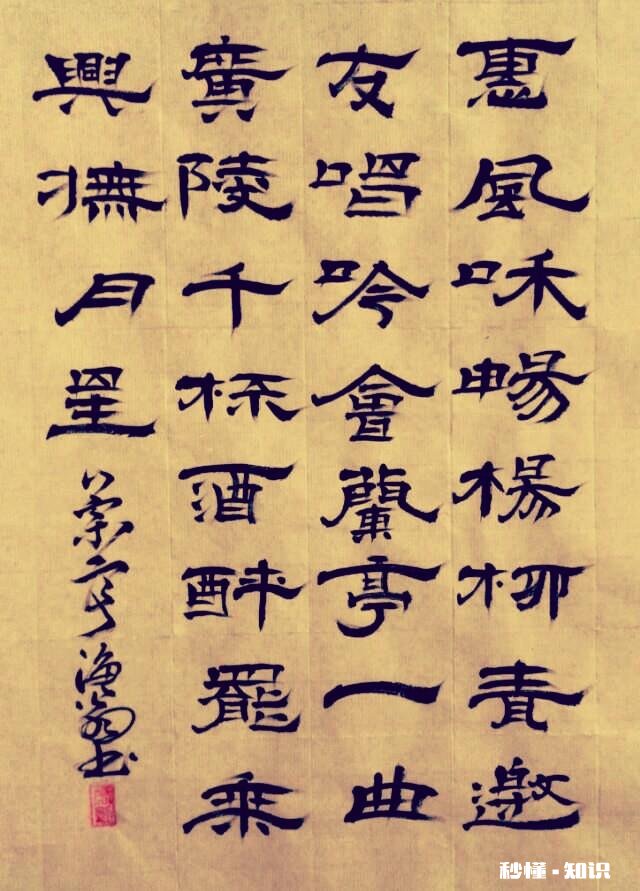 惠風和暢楊柳青邀
友唱吟會蘭亭一曲
廣陵千杯酒醉罷乘
興撫月星
漁翁书
秒懂-知识